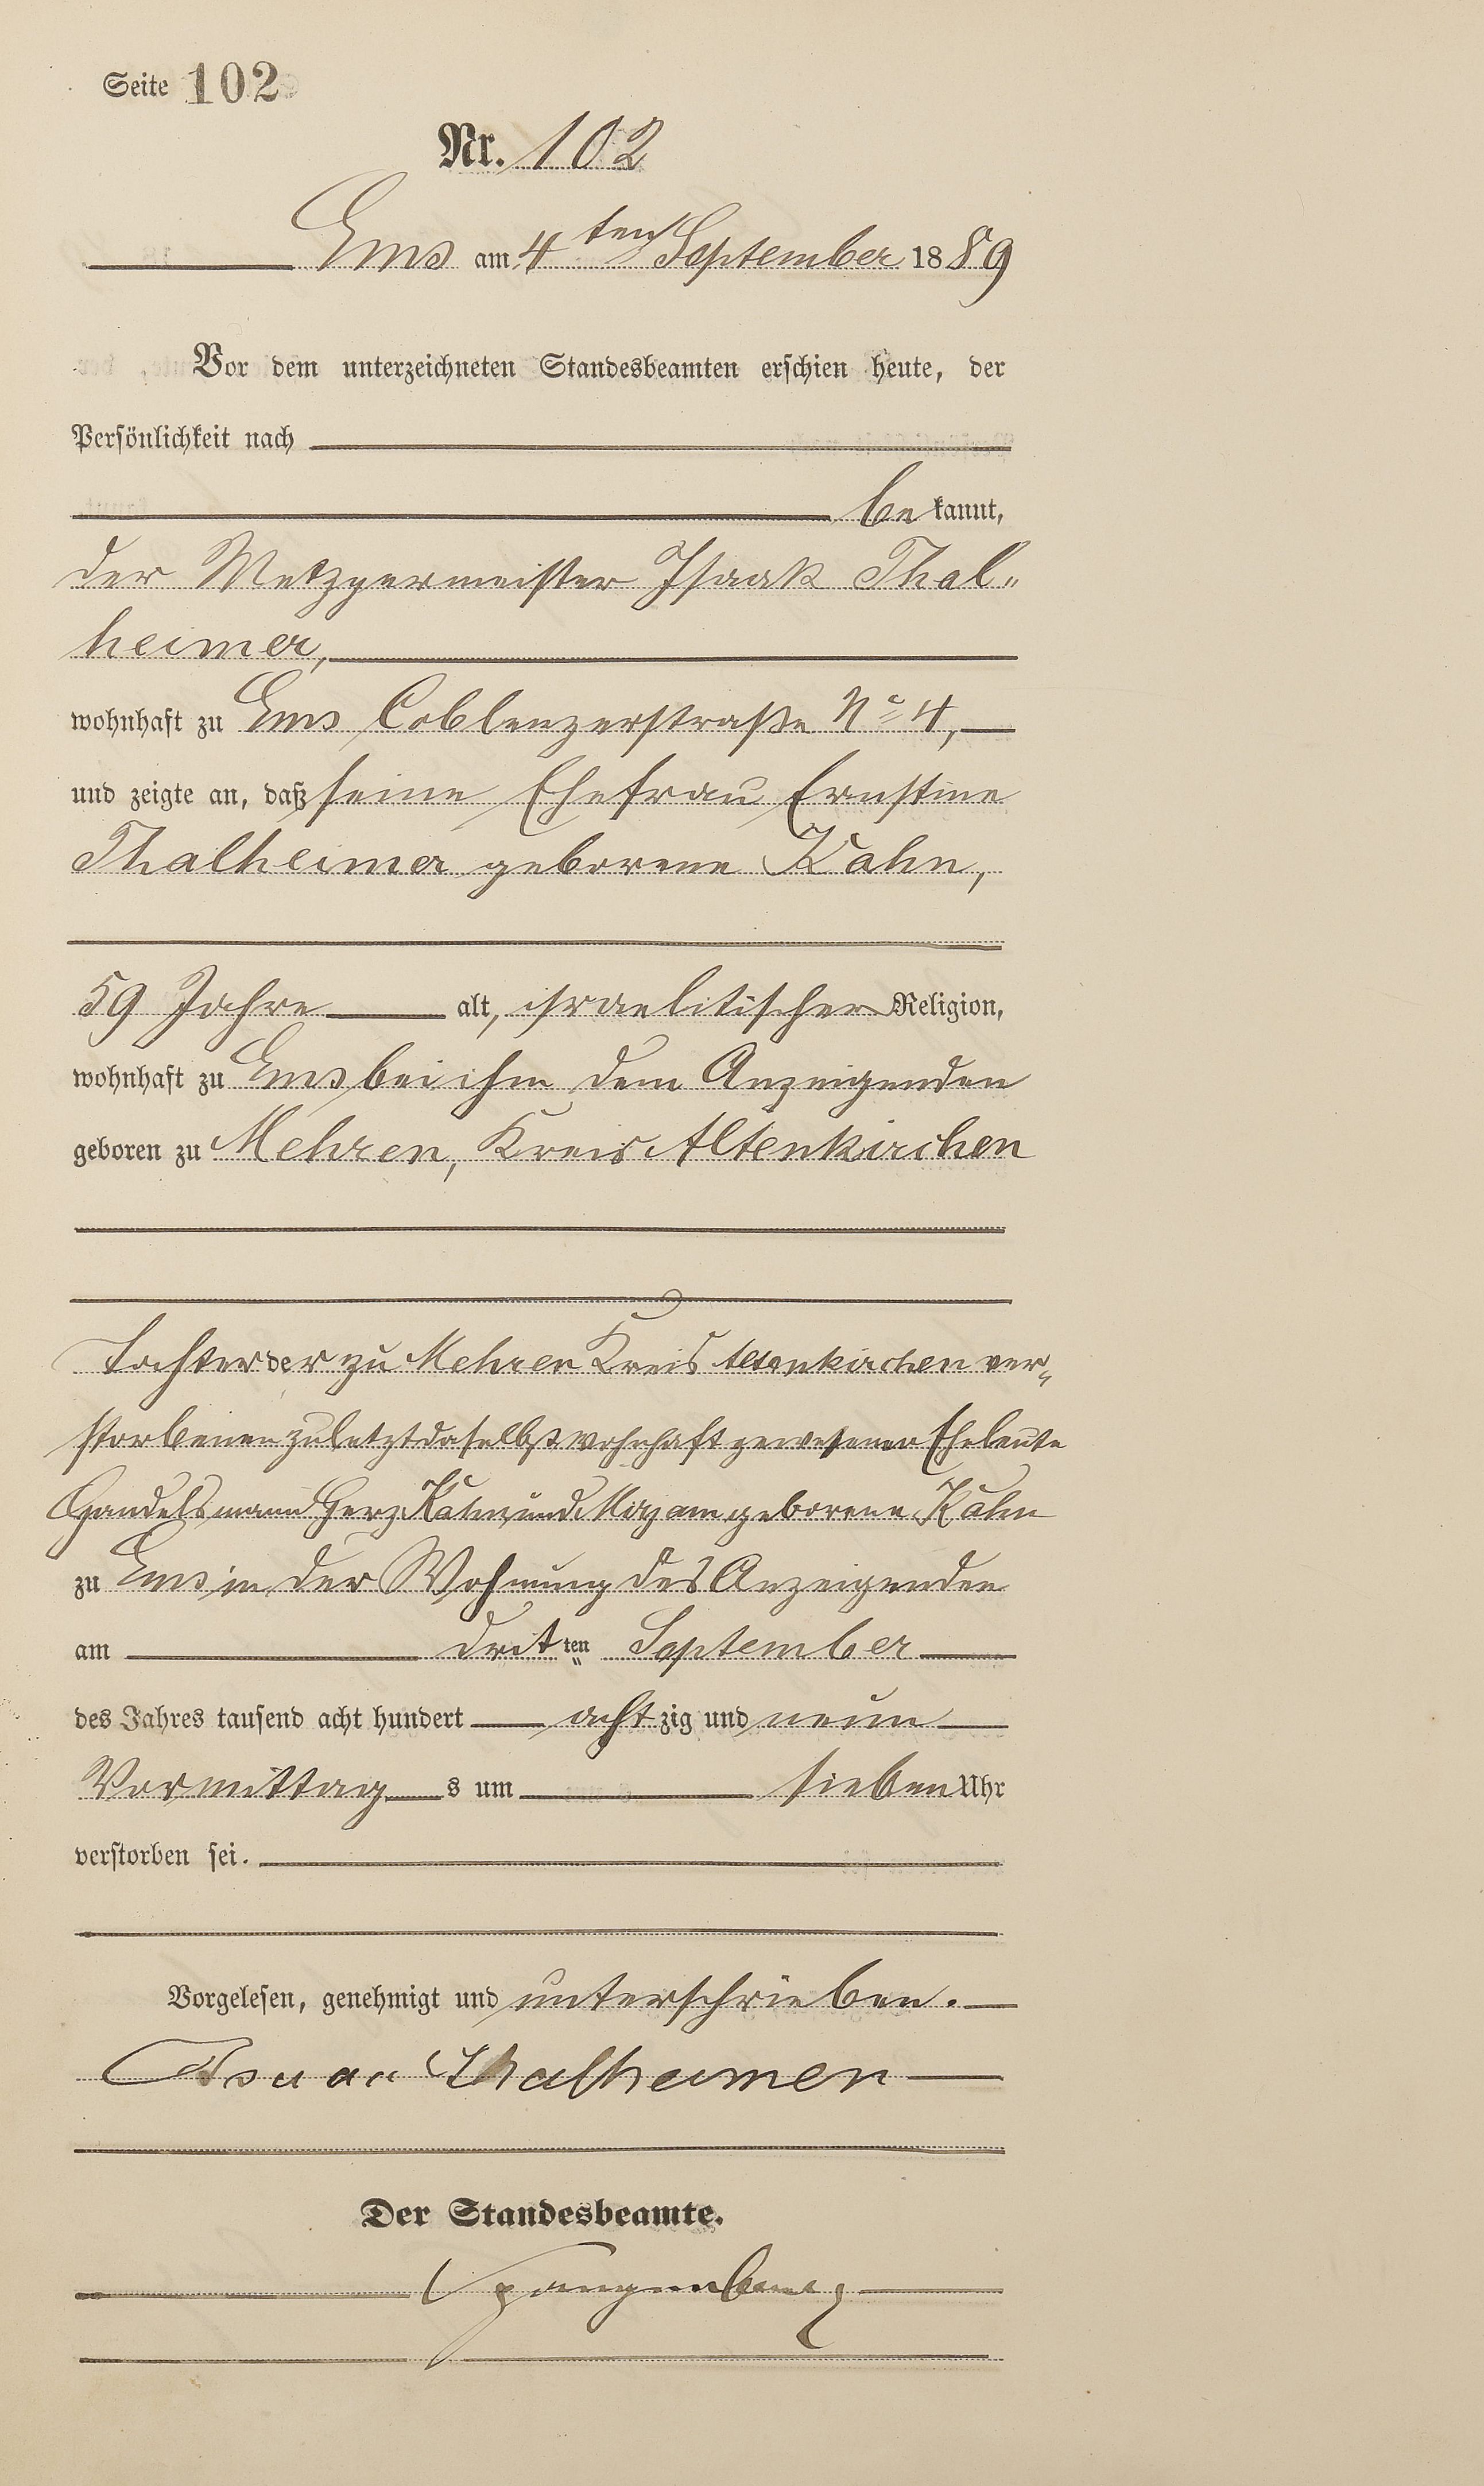 Seite 102
Nr. 102
Ems am 4ten September 1889
Vor dem unterzeichneten Standesbeamten erschien heute, der
Persönlichkeit nach
bekannt,
der Metzgermeister Isaak Thal„
heimer,
wohnhaft zu Ems Coblenzerstraße No 4,
und zeigte an, daß seine Ehefrau Ernstine
Thalheimer geborene Kahn,
59 Jahre alt, israelitischer Religion,
wohnhaft zu Ems bei ihm dem Anzeigenden
geboren zu Mehren, Kreis Altenkirchen
Tochter der zu Mehren Kreis Altenkirchen ver„
storbenen zuletzt daselbst wohnhaft gewesenen Eheleute
Handelsmann Herz Kahn und geborene Kahn
zu Ems in der Wohnung des Anzeigenden
am dritten September
des Jahres tausend acht hundert achtzig und neun
Vormittags um sieben Uhr
verstorben sei.
Vorgelesen, genehmigt und unterschrieben.
Thalheimer
Der Standesbeamte.
Spangenberg